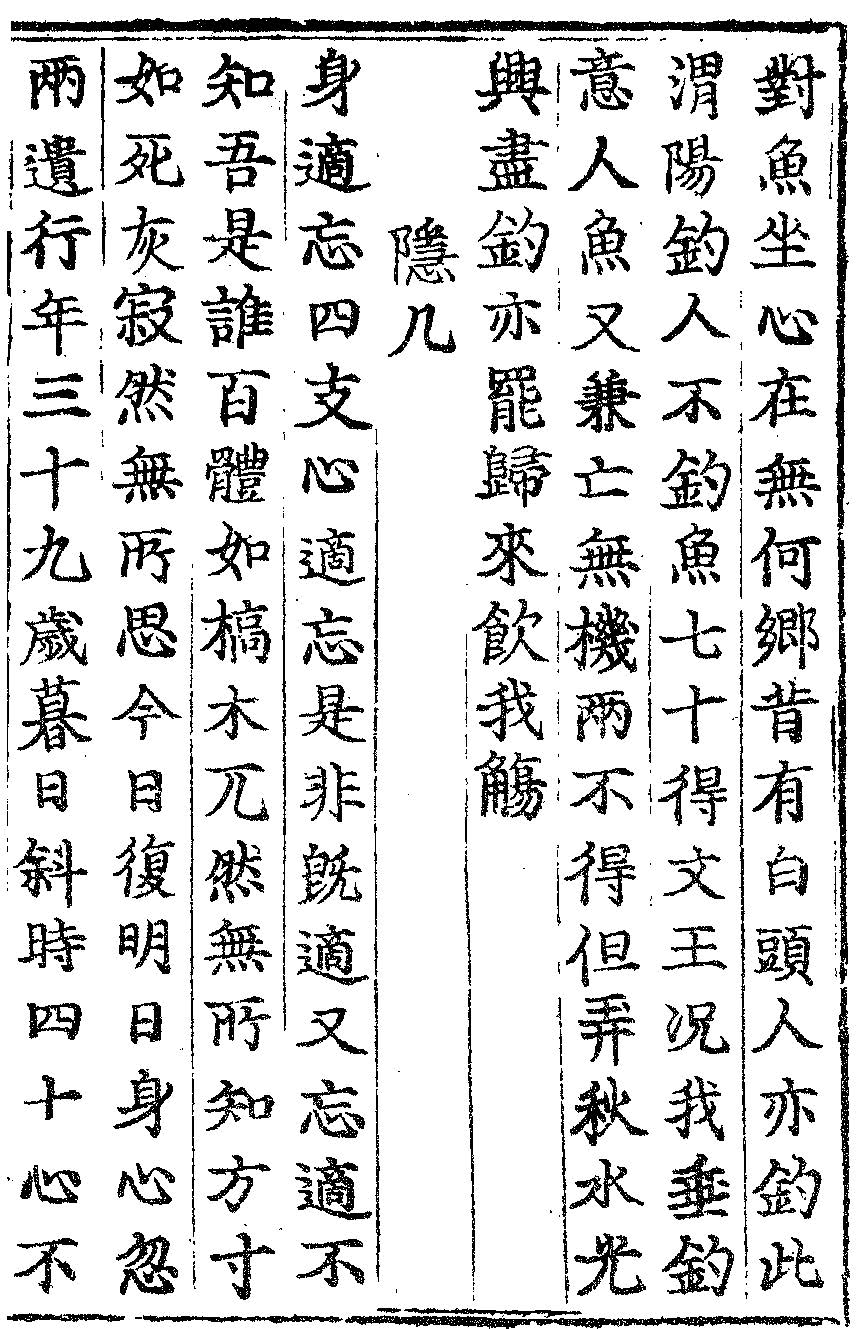 對魚坐心在無何鄉昔有白頭人亦釣此
渭陽釣人不釣魚七十得文王况我垂釣
意人魚又兼亡無機兩不得但弄秋水光
興盡釣亦罷歸來飲我觴
隱几
身適忘四支心適忘是非旣適又忘適不
知吾是誰百體如槁木兀然無所知方寸
如死灰寂然無所思今日復明日身心忽
兩遺行年三十九歲暮日斜時四十心不